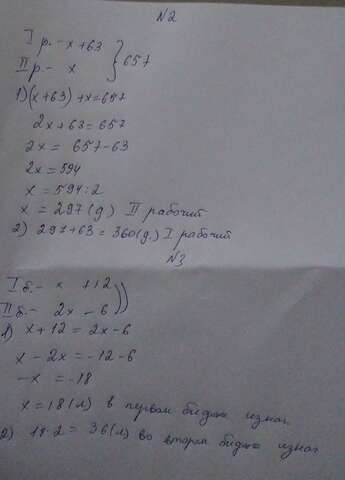 N2
I р. - x + 63
II р. - x } 657
1) (x+63) + x = 657
2x + 63 = 657
2x = 657 - 63
2x = 594
x = 594 : 2
x = 297 (д) II рабочий
2) 297 + 63 = 360 (д.) I рабочий
N3
I б. - x + 12
II б. - 2x - 6
1) x + 12 = 2x - 6
x - 2x = -12 - 6
-x = -18
x = 18 (л) в первом бидоне изнач.
2) 18 · 2 = 36 (л) во втором бидоне изнач